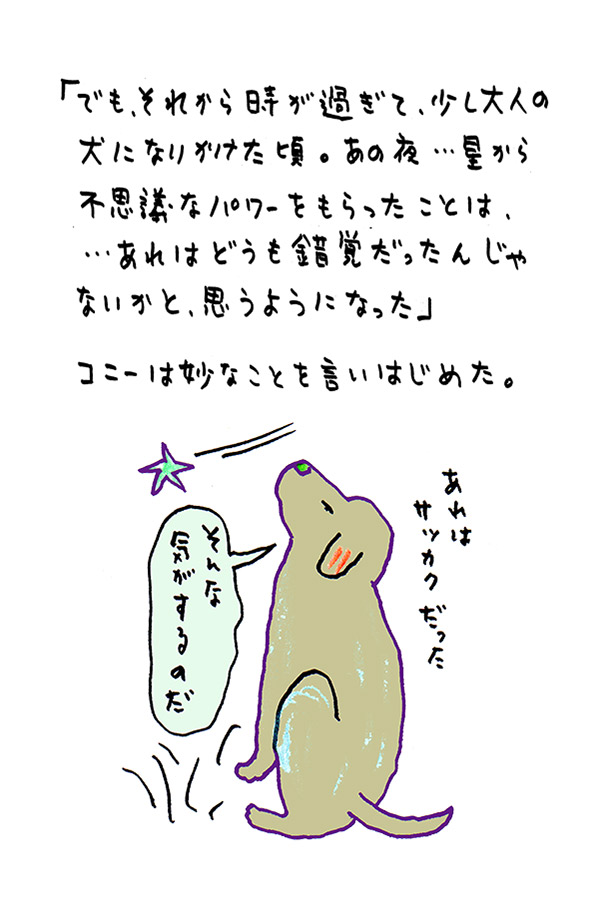 「でも、それから時が過ぎて、少し大人の
犬になりかけた頃。あの夜…星から
不思議なパワーをもらったことは、
…あれはどうも錯覚だったんじゃ
ないかと、思うようになった」
コニーは妙なことを言いはじめた。
あれは
サッカクだった
そんな
気がするのだ